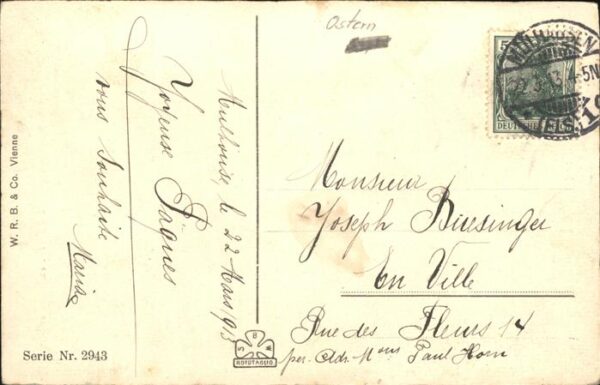 Ostern
5
MÜLHAUSEN
22. 3. 13. 4-5N.
(ELS.) 1
DEUTSCHES
Mulhouse, le 22 Mars 1913
Joyeuse Pâques
vous souhaite
Maria
Monsieur
Joseph Biesinger
En Ville
Rue des Fleurs 14
per. Adr. Mons Paul Horn
W. R. B. & Co. Vienne
Serie Nr. 2943
S B W